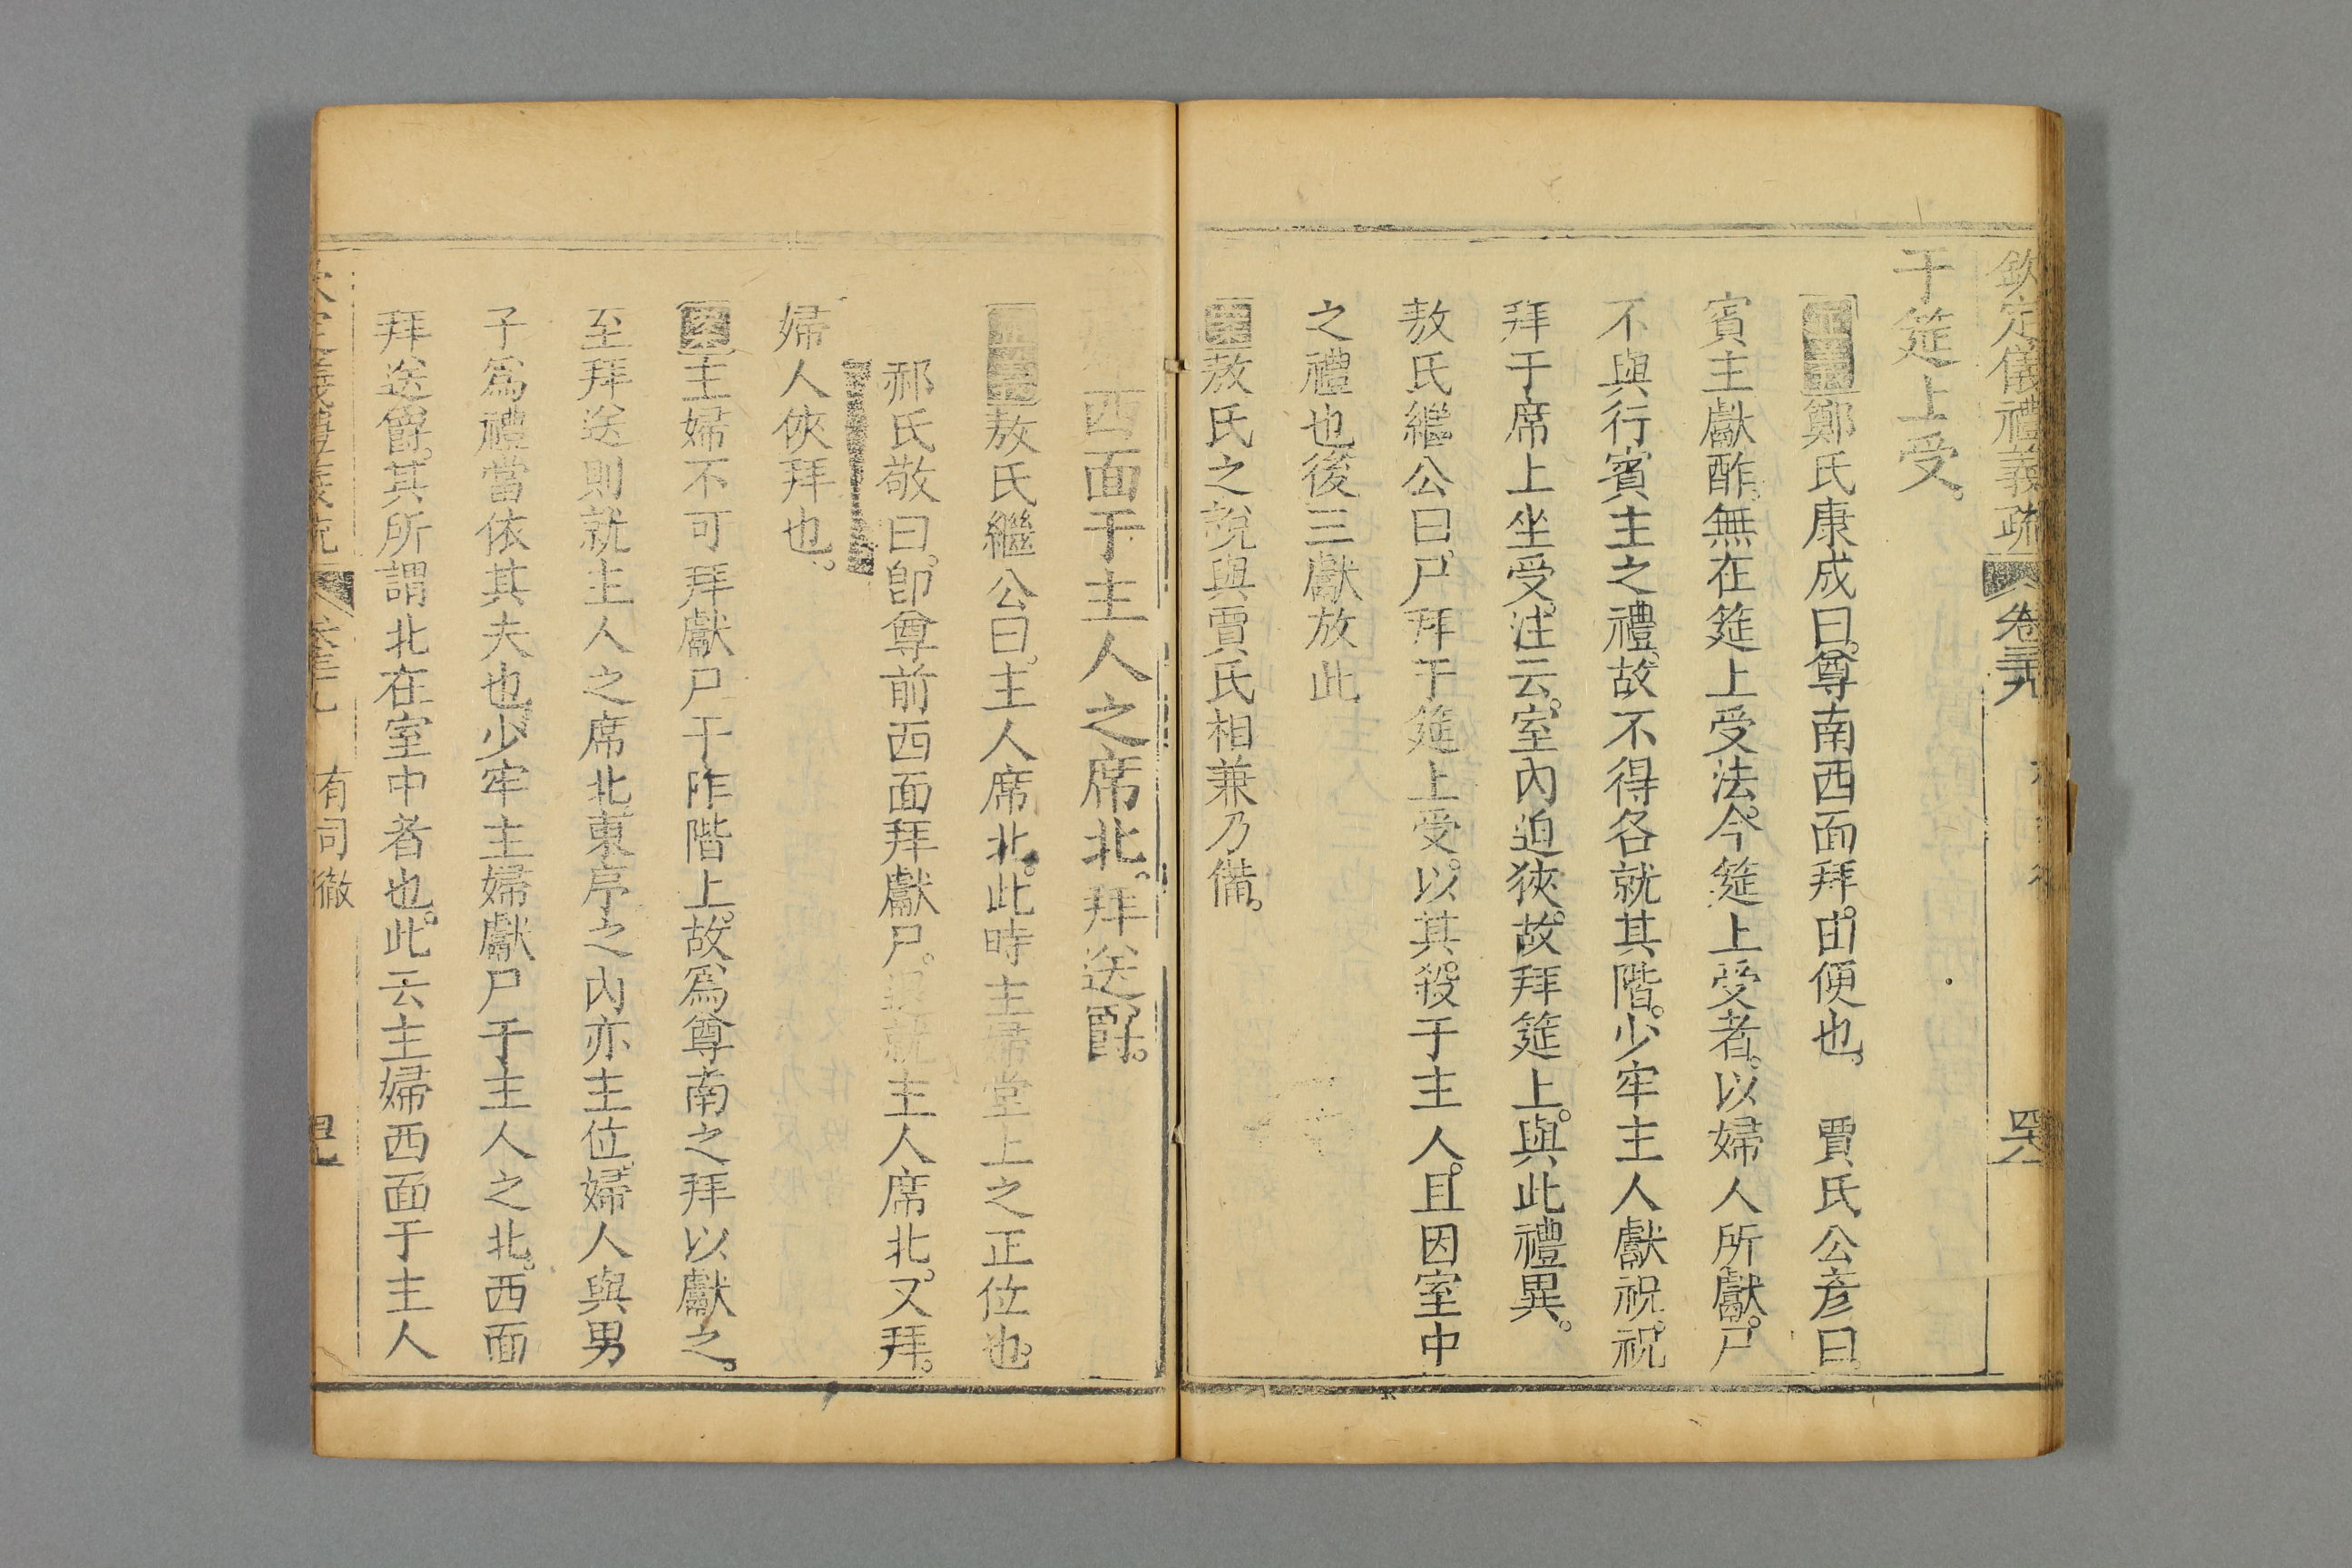 欽定儀禮義疏 卷三十九
于筵上受。
正義鄭氏康成曰。尊南西面拜。由便也。 賈氏公彥曰。
賓主獻酢。無在筵上受法。今筵上受者。以婦人所獻。尸
不與行賓主之禮。故不得各就其階。少牢主人獻祝。祝
拜于席上坐受。注云。室內迫狹。故拜筵上。與此禮異。
敖氏繼公曰。尸拜于筵上受。以其殺于主人。且因室中
之禮也後三獻放此
敖氏之說與賈氏相兼乃備。
西面于主人之席北。拜送爵。
敖氏繼公曰。主人席北。此時主婦堂上之正位也。
郝氏敬曰。卽尊前西面拜獻尸。退就主人席北。又拜。
婦人俠拜也。
案主婦不可拜獻尸于阼階上。故爲尊南之拜以獻之。
至拜送則就主人之席北。東序之內亦主位。婦人與男
子爲禮當依其夫也。少牢主婦獻尸于主人之北。西面
拜送爵。其所謂北在室中者也。此云主婦西面于主人
有司徹